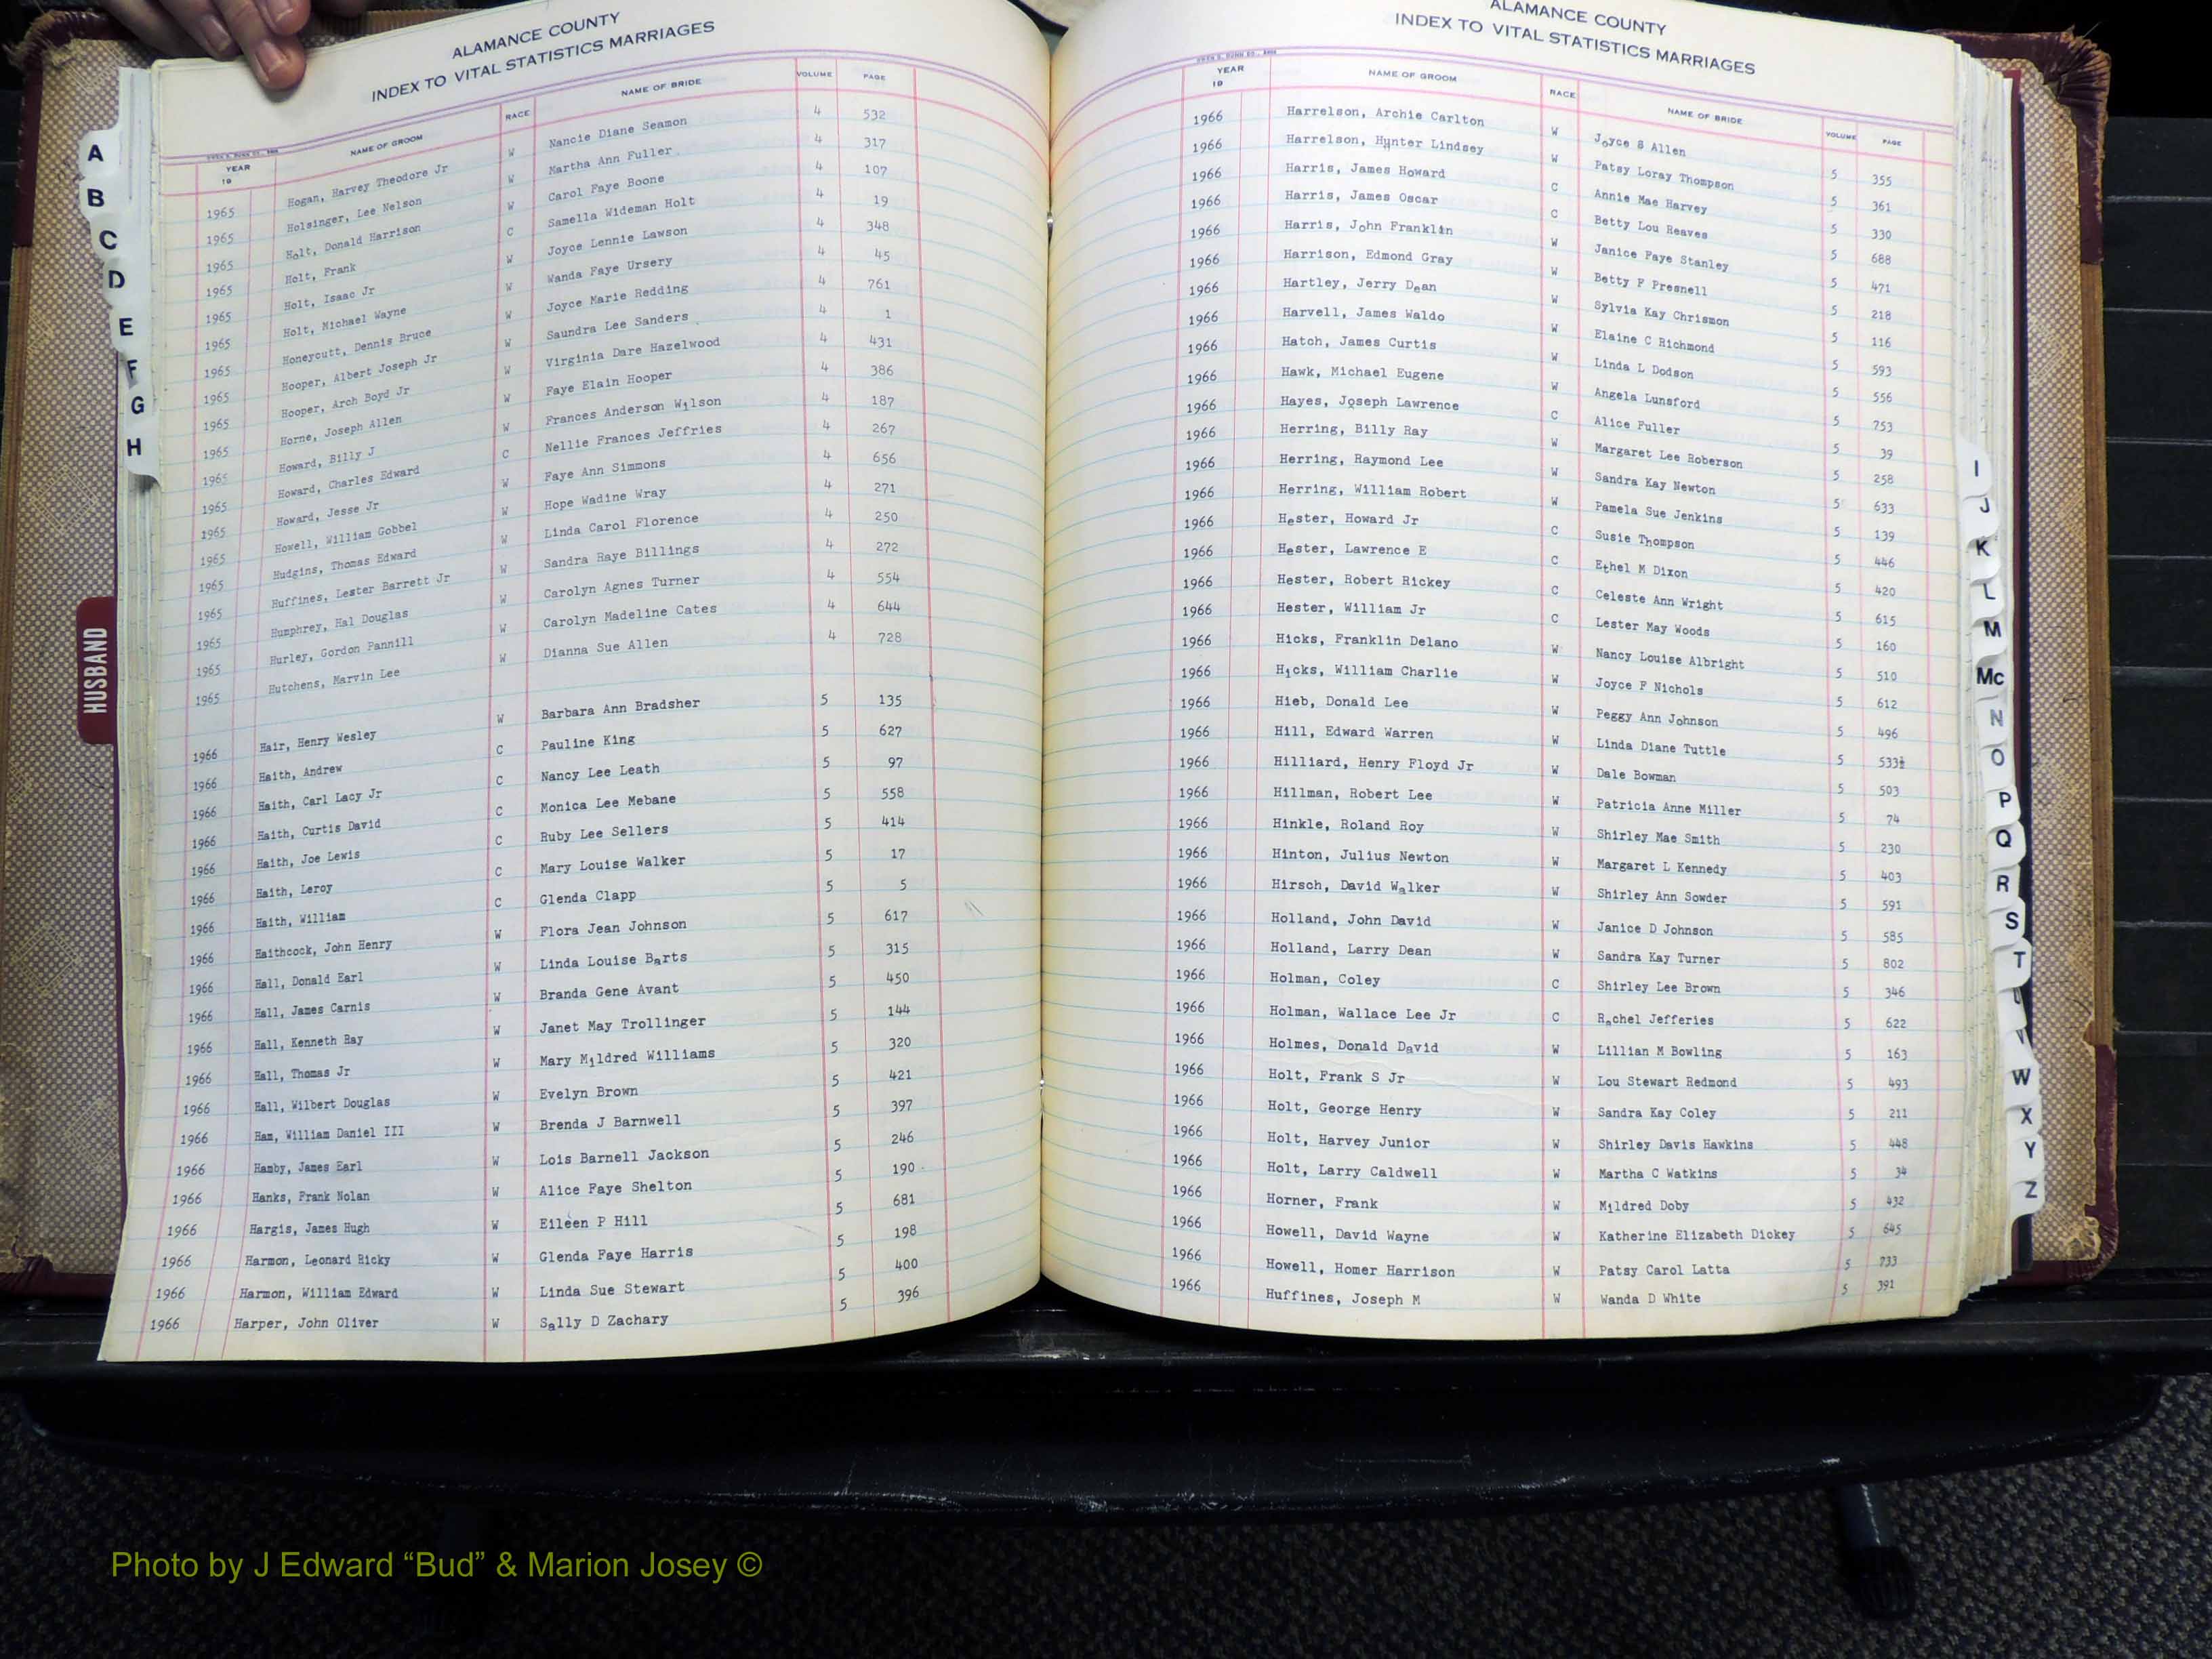 ALAMANCE COUNTY
INDEX TO VITAL STATISTICS MARRIAGES
YEAR 19 NAME OF GROOM RACE NAME OF BRIDE VOLUME PAGE
1965 Hogan, Harvey Theodore Jr W Nancie Diane Seamon 4 532
1965 Holsinger, Lee Nelson W Martha Ann Fuller 4 317
1965 Holt, Donald Harrison W Carol Faye Boone 4 107
1965 Holt, Frank C Samella Wideman Holt 4 19
1965 Holt, Isaac Jr W Joyce Lennie Lawson 4 348
1965 Holt, Michael Wayne W Wanda Faye Ursery 4 45
1965 Honeycutt, Dennis Bruce W Joyce Marie Redding 4 761
1965 Hooper, Albert Joseph Jr W Saundra Lee Sanders 4 1
1965 Hooper, Arch Boyd Jr W Virginia Dare Hazelwood 4 431
1965 Horne, Joseph Allen W Faye Elain Hooper 4 386
1965 Howard, Billy J W Frances Anderson Wilson 4 187
1965 Howard, Charles Edward C Nellie Frances Jeffries 4 267
1965 Howard, Jesse Jr W Faye Ann Simmons 4 656
1965 Howell, William Gobbel W Hope Wadine Wray 4 271
1965 Hudgins, Thomas Edward W Linda Carol Florence 4 250
1965 Huffines, Lester Barrett Jr W Sandra Raye Billings 4 272
1965 Humphrey, Hal Douglas W Carolyn Agnes Turner 4 554
1965 Hurley, Gordon Pannill W Carolyn Madeline Cates 4 644
1965 Hutchens, Marvin Lee W Dianna Sue Allen 4 728
1966 Hair, Henry Wesley W Barbara Ann Bradsher 5 135
1966 Haith, Andrew C Pauline King 5 627
1966 Haith, Carl Lacy Jr C Nancy Lee Leath 5 97
1966 Haith, Curtis David C Monica Lee Mebane 5 558
1966 Haith, Joe Lewis C Ruby Lee Sellers 5 414
1966 Haith, Leroy C Mary Louise Walker 5 17
1966 Haith, William C Glenda Clapp 5 5
1966 Haithcock, John Henry W Flora Jean Johnson 5 617
1966 Hall, Donald Earl W Linda Louise Barts 5 315
1966 Hall, James Carnis W Branda Gene Avant 5 450
1966 Hall, Kenneth Ray W Janet May Trollinger 5 144
1966 Hall, Thomas Jr W Mary Mildred Williams 5 320
1966 Hall, Wilbert Douglas W Evelyn Brown 5 421
1966 Ham, William Daniel III W Brenda J Barnwell 5 397
1966 Hamby, James Earl W Lois Barnell Jackson 5 246
1966 Hanks, Frank Nolan W Alice Faye Shelton 5 190
1966 Hargis, James Hugh W Eileen P Hill 5 681
1966 Harmon, Leonard Ricky W Glenda Faye Harris 5 198
1966 Harmon, William Edward W Linda Sue Stewart 5 400
1966 Harper, John Oliver W Sally D Zachary 5 396
A
B
C
D
E
F
G
H
HUSBAND
ALAMANCE COUNTY
INDEX TO VITAL STATISTICS MARRIAGES
YEAR 19 NAME OF GROOM RACE NAME OF BRIDE VOLUME PAGE
1966 Harrelson, Archie Carlton W Joyce S Allen 5 355
1966 Harrelson, Hunter Lindsey W Patsy Loray Thompson 5 361
1966 Harris, James Howard C Annie Mae Harvey 5 330
1966 Harris, James Oscar C Betty Lou Heaves 5 688
1966 Harris, John Franklin W Janice Faye Stanley 5 471
1966 Harrison, Edmond Gray W Betty F Presnell 5 218
1966 Hartley, Jerry Dean W Sylvia Kay Chrismon 5 116
1966 Harvell, James Waldo W Elaine C Richmond 5 593
1966 Hatch, James Curtis W Linda L Dodson 5 556
1966 Hawk, Michael Eugene W Angela Lunsford 5 753
1966 Hayes, Joseph Lawrence C Alice Fuller 5 39
1966 Herring, Billy Ray W Margaret Lee Roberson 5 258
1966 Herring, Raymond Lee W Sandra Kay Newton 5 633
1966 Herring, William Robert W Pamela Sue Jenkins 5 139
1966 Hester, Howard Jr C Susie Thompson 5 446
1966 Hester, Lawrence E C Ethel M Dixon 5 420
1966 Hester, Robert Rickey C Celeste Ann Wright 5 615
1966 Hester, William Jr C Lester May Woods 5 160
1966 Hicks, Franklin Delano W Nancy Louise Albright 5 510
1966 Hicks, William Charlie W Joyce F Nichols 5 612
1966 Hieb, Donald Lee W Peggy Ann Johnson 5 496
1966 Hill, Edward Warren W Linda Diane Tuttle 5 533½
1966 Hilliard, Henry Floyd Jr W Dale Bowman 5 503
1966 Hillman, Robert Lee W Patricia Anne Miller 5 74
1966 Hinkle, Roland Roy W Shirley Mae Smith 5 230
1966 Hinton, Julius Newton W Margaret L Kennedy 5 403
1966 Hirsch, David Walker W Shirley Ann Sowder 5 591
1966 Holland, John David W Janice D Johnson 5 585
1966 Holland, Larry Dean W Sandra Kay Turner 5 802
1966 Holman, Coley C Shirley Lee Brown 5 346
1966 Holman, Wallace Lee Jr C Rachel Jefferies 5 622
1966 Holmes, Donald David W Lillian M Bowling 5 163
1966 Holt, Frank S Jr W Lou Stewart Redmond 5 493
1966 Holt, George Henry W Sandra Kay Coley 5 211
1966 Holt, Harvey Junior W Shirley Davis Hawkins 5 448
1966 Holt, Larry Caldwell W Martha C Watkins 5 34
1966 Horner, Frank W Mildred Doby 5 432
1966 Howell, David Wayne W Katherine Elizabeth Dickey 5 645
1966 Howell, Homer Harrison W Patsy Carol Latta 5 733
1966 Huffines, Joseph M W Wanda D White 5 391
I
J
K
L
M
Mc
N
O
P
Q
R
S
T
W
X
Y
Z
Photo by J Edward “Bud” & Marion Josey ©